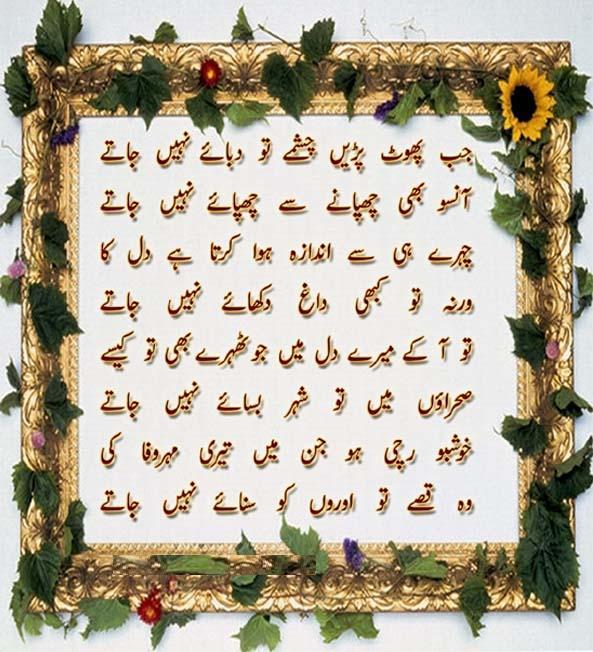 جب پھوٹ پڑیں چشمے تو دبائے نہیں جاتے
آنسو بھی چھپانے سے چھپائے نہیں جاتے
چہرے ہی سے اندازہ ہوا کرتا ہے دل کا
ورنہ تو کبھی داغ دکھائے نہیں جاتے
تو آ کے میرے دل میں جو ٹھہرے بھی تو کیسے
صحراؤں میں تو شہر بسائے نہیں جاتے
خوشبو رچی ہو جن میں تیری مہرو وفا کی
وہ قصے تو اوروں کو سنائے نہیں جاتے